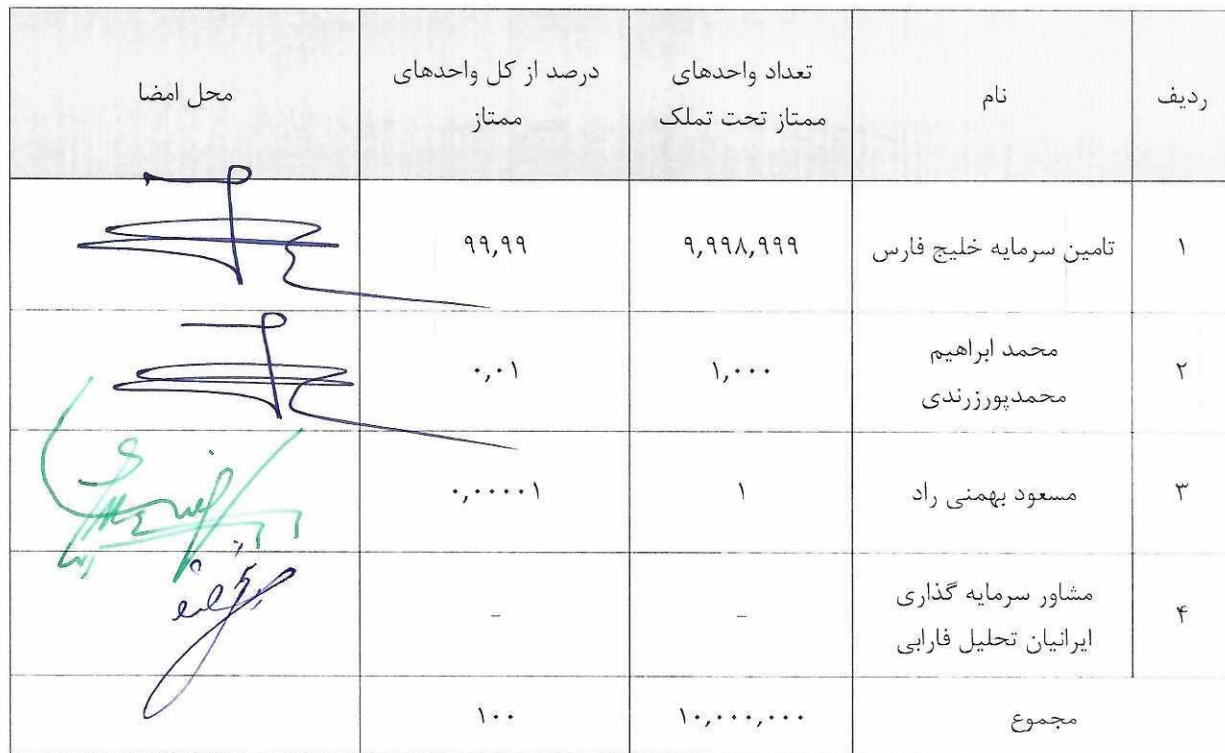 ردیف
نام
تعداد واحدهای
ممتاز تحت تملک
درصد از کل واحدهای
ممتاز
محل امضا
۱
تامین سرمایه خلیج فارس
۹,۹۹۸,۹۹۹
۹۹,۹۹
۲
محمد ابراهیم
محمدپورزرندی
۱,۰۰۰
۰,۰۱
۳
مسعود بهمنی راد
۱
۰,۰۰۰۰۱
۴
مشاور سرمایه گذاری
ایرانیان تحلیل فارابی
-
-
مجموع
۱۰,۰۰۰,۰۰۰
۱۰۰